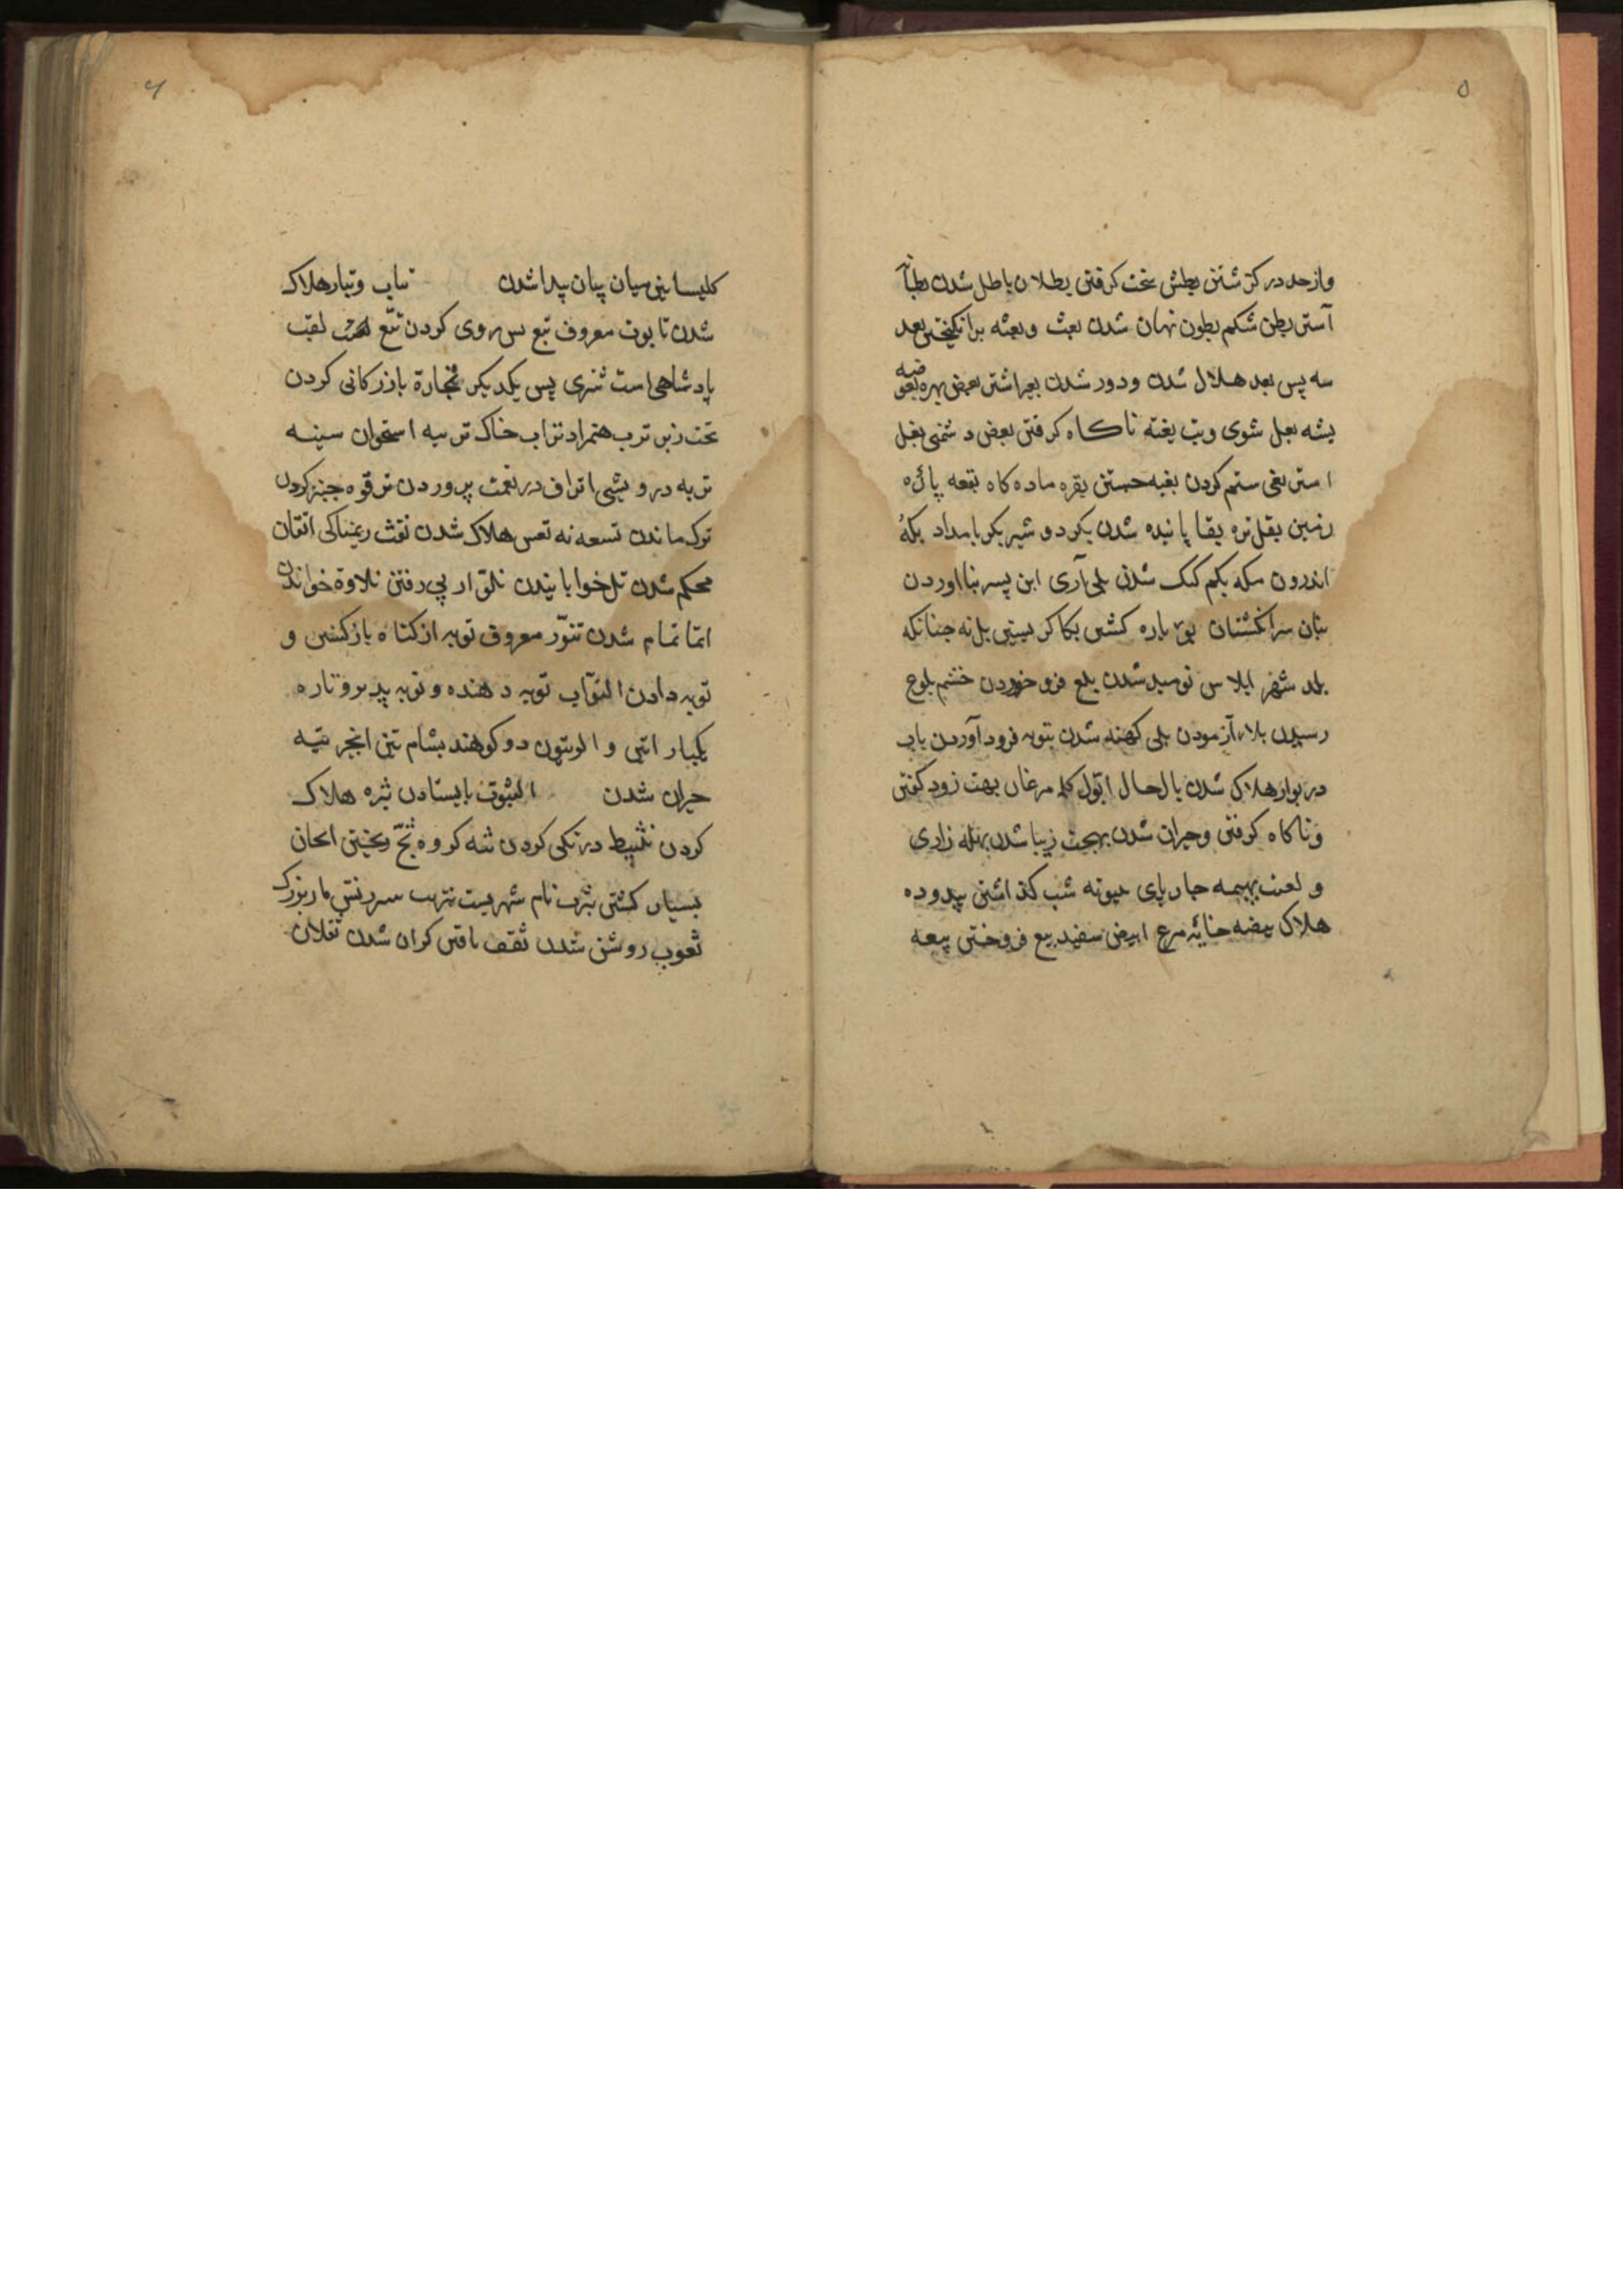 ۵
وازحد در کذشتن بطش سخت کرفتن بطلان باطل شدن بطانة
آستر بطن شکم بطون نهان شدن بعث و بعثه برانکیختن بعد
سه پس بعد هلال شدن و دور شدن بعض بهره بعوضه
پشه بعل شوی وبت بغته ناکاه کرفتن بغض دشمنی بغل
استر بغی ستم کردن بغیه جستن بقره ماده کاو بقعه پارۀ
زمین بقل تره بقا پاینده شدن بکر دوشیزه بکر بامداد بکة
اندرون مکه بکم کنک شدن بلی آری ابن پسر بنا اوردن
بنان سرانکشتان باره کشتن بکا کریستن بل نه چنانکه
بلد شهر ابلاس نومید شدن بلع فرو خوردن خشم بلوغ
رسیدن بلاء آزمودن بلی کهنه شدن فرود آوردن باب
در بوار هلاک شدن بال حال ابابیل کله مرغان بهت زود کفتن
و ناکاه کرفتن و حیران شدن بهجت زیبا شدن بهله زاری
و لعنت بهیمه چار پای بیتوته شب کذاشتن بیدوده
هلاک بیضه خایۀ مرغ ابیض سفید بیع فروختن بیعه
۶
کلیسا بین میان بیان پیدا شدن تباب و تبار هلاک
شدن تابوت معروف تبع پس روی کردن تبّع لقب
پادشاهی است تتری پس یکدیکر تجارة بازرکانی کردن
تحت زیر ترب همزاد تراب خاک تریبه استخوان سینه
تربه درویشی اتراف در نعمت پروردن ترقوه چنبر کردن
ترک ماندن تسعه نه تعس هلاک شدن تفث ریمناکی اتقان
محکم شدن تل خوابانیدن تلوّ از پی رفتن تلاوة خواندن
اتما تمام شدن تنوّر معروف توبه از کناه بازکشتن و
توبه دادن التوّاب توبه دهنده و توبه پذیر و تاره
یکبار التین و الزیتون دو کوهند بشام تین انجیر تیه
حیران شدن الثبوت بایستادن ثبره هلاک
کردن تثبیط درنکی کردن ثبه کروه ثجّ ریختن اثخان
بسیار کشتن یثرب نام شهریست تثریب سرزنش مار بزرک
ثقوب روشن شدن ثقف یافتن کران شدن ثقلان